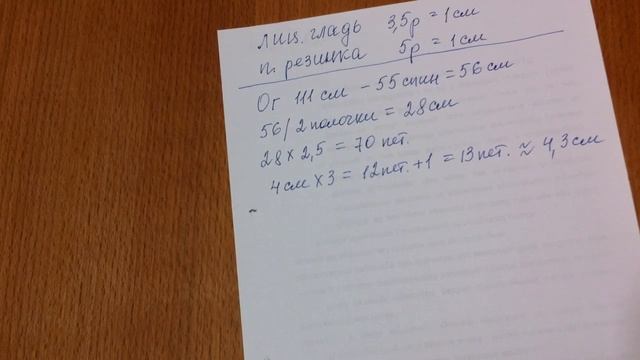 лиц. гладь 3,5р = 1см
п. резинка 5р = 1см
Ог 111см - 55 спин = 56 см
56/2 полочки = 28см
28 × 2,5 = 70 пет.
4см × 3 = 12пет. + 1 = 13пет. ≈ 4,3см